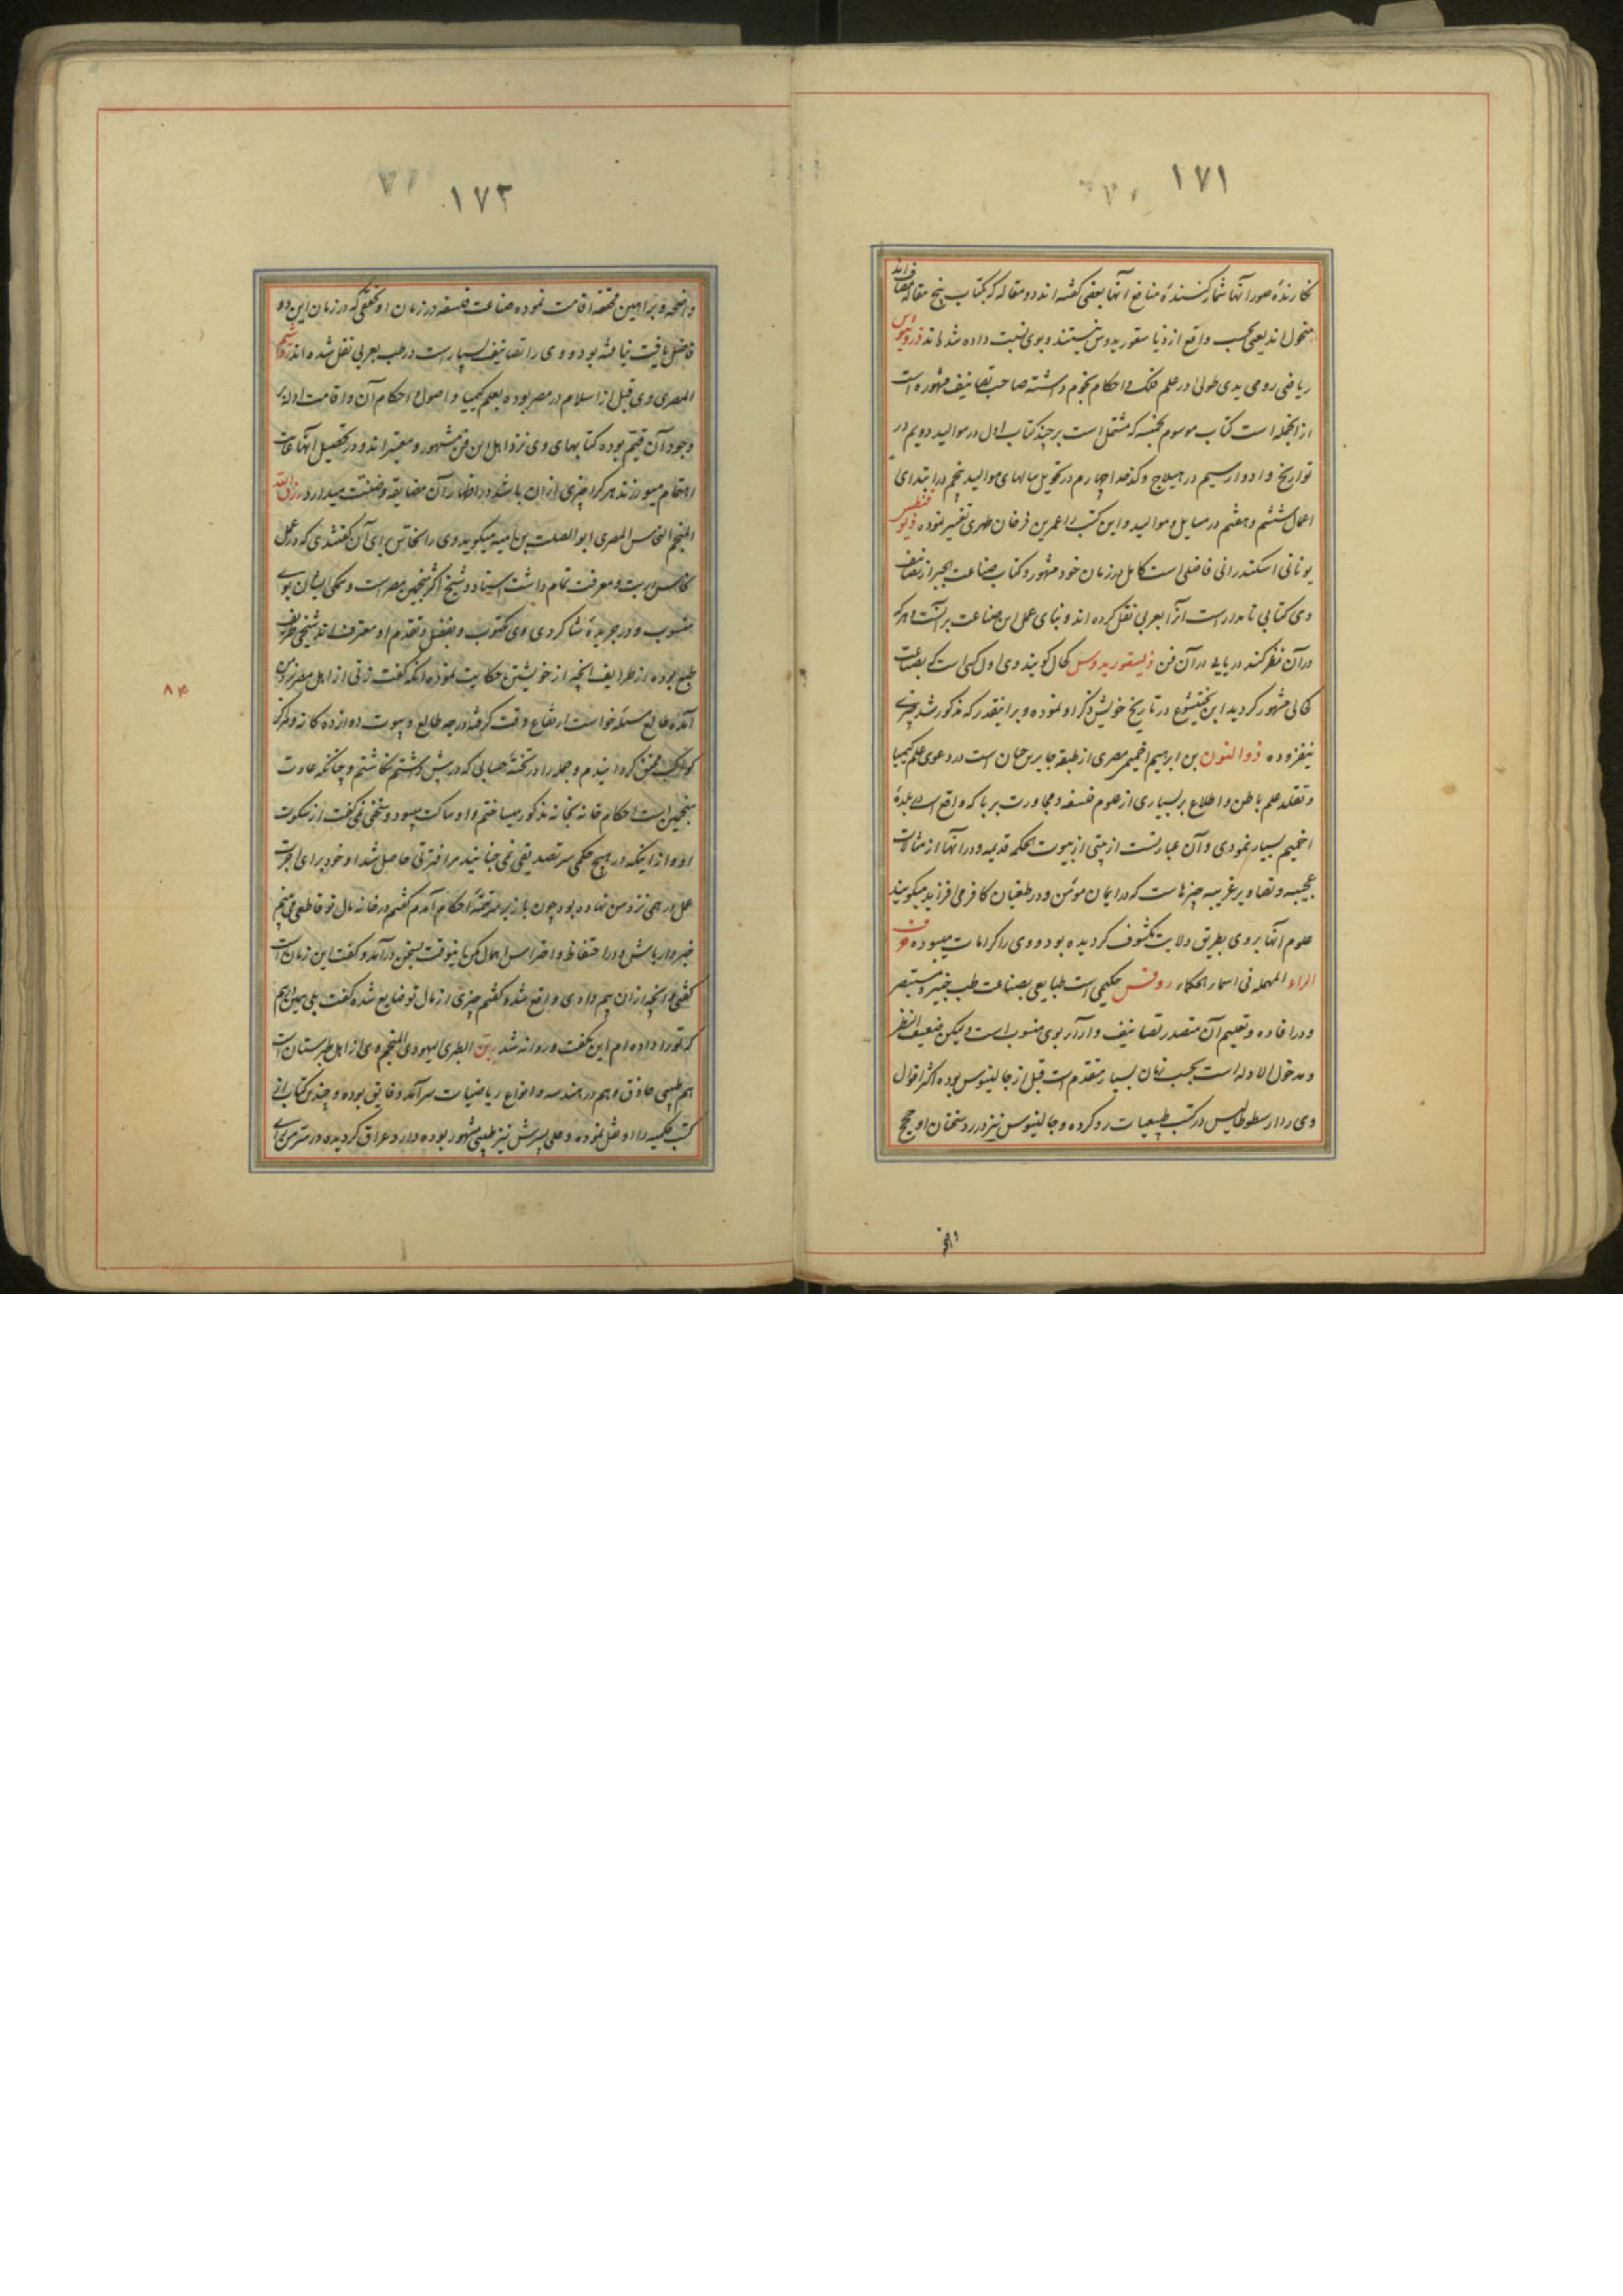 ۱۷۱
نگارندهٔ صور آنها شمارکنندهٔ منافع آنها بعضی گفته‌اند دو مقاله که بکتاب پنج مقاله مضاف اند
منحول اند یعنی بحسب واقع از دیاسقوریدوس نیستند و بوی نسبت داده شده اند ذروثیوس
ریاضی رومی یدی طولی در علم فلک و احکام نجوم داشته صاحب تصانیف مشهوره است
از آنجمله است کتاب موسوم بخمسه که مشتمل است بر چند کتاب اول در موالید دویم در
تواریخ و ادوار سیم در هیلاج و کدخدا چهارم در تحویل سالهای موالید پنجم در ابتدای
اعمال ششم و هفتم در مسایل و موالید و این کتب را عمر بن فرخان طبری تفسیر نموده ذیوفنطس
یونانی اسکندرانی فاضلی است کامل در زمان خود مشهور و کتاب صناعت جبر از تصانیف
وی کتابی نامدار است آنرا بعربی نقل کرده اند و بنای عمل این صناعت بر آنست هر که
در آن نظر کند دریابی در آن فن ذیسقوریدوس کحال گویند وی اول کسی است که بصناعت
کحالی مشهور گردید ابن بختیشوع در تاریخ خویش ذکر او نموده و برانیقدر که مذکور شد چیزی
نیفزوده ذوالنون بن ابراهیم اخمیمی مصری از طبقه جابر بن حیان است در دعوی علم کیمیا
و تقلد علم باطن و اطلاع بر بسیاری از علوم فلسفه و مجاورت بربا که واقع است ببلدهٔ
اخمیم بسیار نمودی و آن عبارتست از بیتی از بیوت الحکمه قدیمه و در آنها از مثالات
عجیبه و تصاویر غریبه چیزهاست که در ایمان مؤمن و در طغیان کافر می افزاید میگویند
علوم آنها بروی بطریق ولایت مکشوف گردیده بود و وی را کرامات میبوده حرف
الراء المهمله فی اسماء الحکماء روفس حکیمی است طبایعی بصناعت طب خبیر و مستبصر
و در افاده و تعلیم آن متصدر تصانیف و آراء بوی منسوب است ولیکن ضعیف النظر
و مدخول الادله است بحسب زمان بسیار متقدم است قبل از جالینوس بوده اکثر اقوال
وی را ارسطوطالیس در کتب طبیعیات رد کرده و جالینوس نیز در رد سخنان او حجج
۱۷۲
واضحه و براهین محققه اقامت نموده صناعت فلسفه در زمان او تحققی که در زمان این دو
فاضل یافت نیافته بود و وی را تصانیف بسیار است در طب بعربی نقل شده اند روسم
المصری وی قبل از اسلام در مصر بوده بعلم کیمیا و اصول و احکام آن و اقامت ادله بر
وجود آن قیم بوده کتابهای وی نزد اهل این فن مشهور و معتبر اند و در تحصیل آنها غایت
اهتمام میورزند هر کرا چیزی از ان باشد در اظهار آن مضایقه و ضنت میدارد رزق الله
المنجم النحاس المصری ابوالصلت بن امیه میگوید وی را نحاس برای آن گفتندی که در عمل
نحاس دربت و معرفت تمام داشت استاد و شیخ اکثر منجمین مصر است و همگی ایشان بوی
منسوب و در جریدهٔ شاگردی وی مکتوب و بفضل و تقدم او معترف اند شیخی ظریف
طبع بوده از ظرایف آنچه از خویشتن حکایت نموده آنکه گفت زنی از اهل مصر نزد من
آمده طالع مسئله خواست ارتفاع وقت گرفته درجه طالع و بیوت دوازده گانه و مراکز
کواکب محقق گردانیدم و جمله را در تختهٔ حسابی که در پیش داشتم نگاشتم و چنانکه عادت
منجمین است احکام خانه بخانه مذکور میساختم و او ساکت میبود و سخنی نمی گفت از سکوت
او و از اینکه در هیچ حکمی سر تصدیق نمی جنبانید مرا فترتی حاصل شد او خود برای اجرت
عمل درهمی نزد من نهاده بود چون باز بر سر تختهٔ احکام آمدم گفتم در خانه مال تو قاطعی می بینم
خبردار باش و در احتفاظ و احتراس اهمال مکن اینوقت بسخن درآمد و گفت این زمان راست
گفتی و آنچه از ان بیم دادی واقع شد گفتم چیزی از مال تو ضایع شده گفت بلی همین درهم
که تو را داده ام این بگفت و روانه شد ربن الطبری الیهودی المنجم وی از اهل طبرستان است
هم طبیبی حاذق و هم در هندسه و انواع ریاضیات سرآمد و فایق بوده و چندین کتاب از
کتب حکمیه را او نقل نموده و علی پسرش نیز طبیبی مشهور بوده وارد عراق گردیده در سر من رای
۸۴